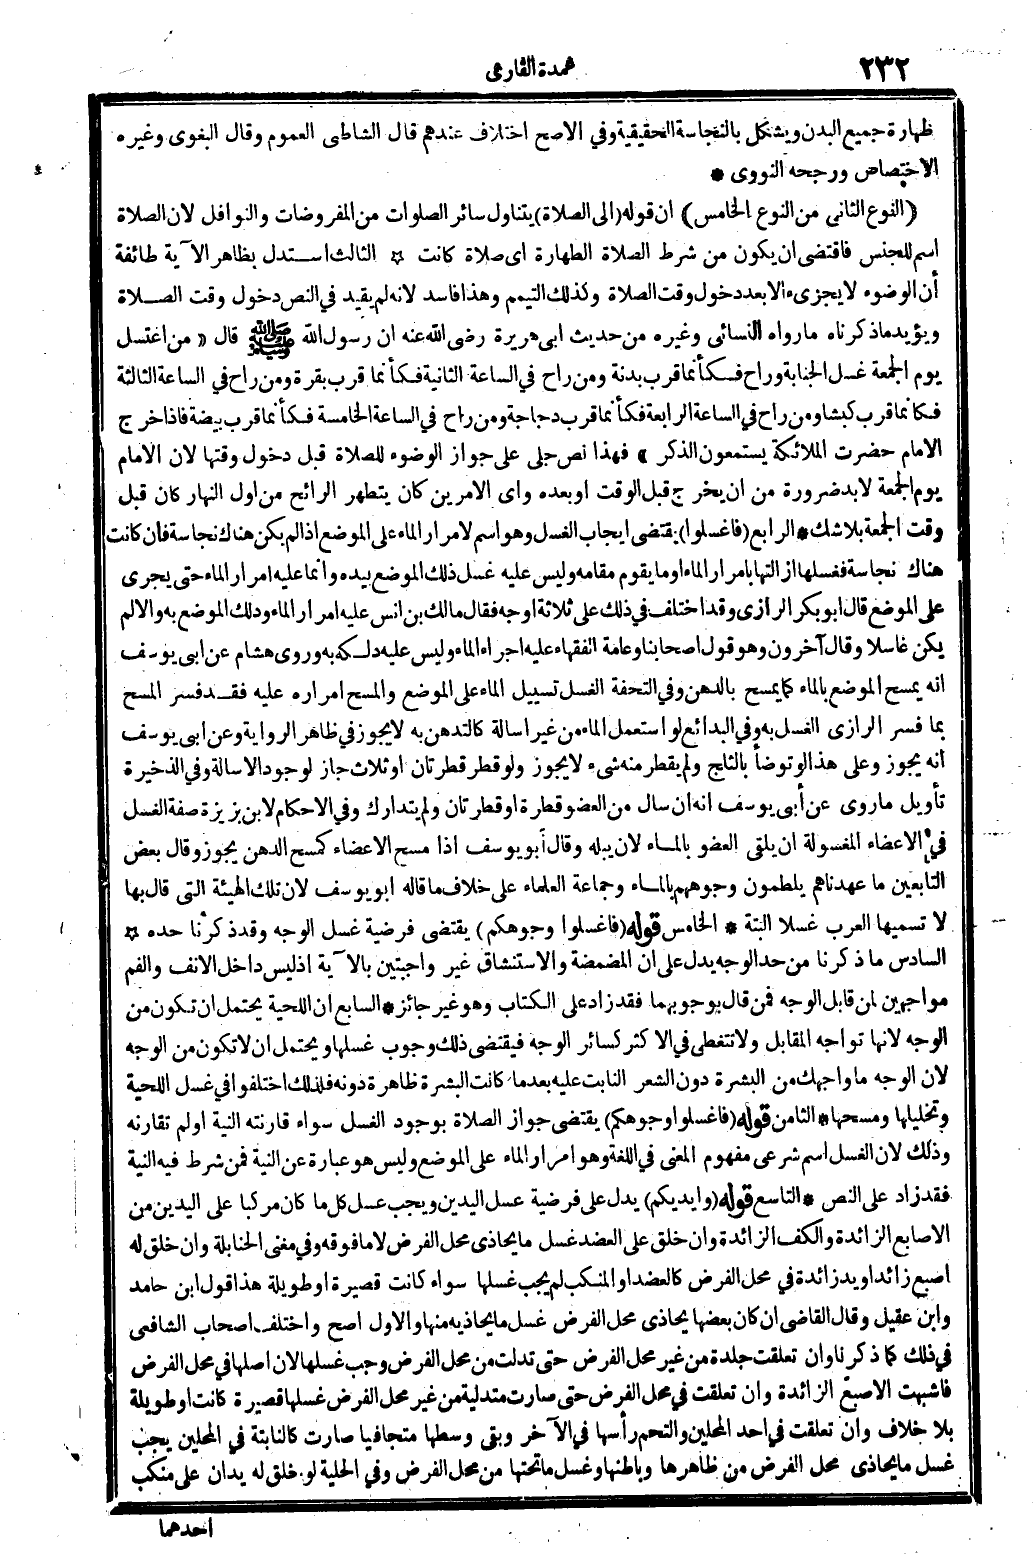 ٢٣٢
عمدة القارى
طهارة جميع البدن ويشكل بالنجاسة الحقيقية وفي الاصح اختلاف عندهم قال الشاطى العموم وقال البغوى وغيره
الاختصاص ورجحه النووى *
(النوع الثانى من النوع الخامس) ان قوله (الى الصلاة) يتناول سائر الصلوات من المفروضات والنوافل لان الصلاة
اسم للجنس فاقتضى ان يكون من شرط الصلاة الطهارة اى صلاة كانت * الثالث استدل بظاهر الآية طائفة
أن الوضوء لا يجزىء الا بعد دخول وقت الصلاة وكذلك التيمم وهذا فاسد لانه لم يقيد في النص دخول وقت الصلاة
ويؤيد ما ذكرناه ما رواه النسائى وغيره من حديث ابى هريرة رضى الله عنه ان رسول الله ﷺ قال « من اغتسل
يوم الجمعة غسل الجنابة وراح فكأنما قرب بدنة ومن راح في الساعة الثانية فكأنما قرب بقرة ومن راح في الساعة الثالثة
فكانما قرب كبشا ومن راح في الساعة الرابعة فكأنما قرب دجاجة ومن راح في الساعة الخامسة فكأنما قرب بيضة فاذا خرج
الامام حضرت الملائكة يستمعون الذكر » فهذا نص جلى على جواز الوضوء للصلاة قبل دخول وقتها لان الامام
يوم الجمعة لا بد ضرورة من ان يخرج قبل الوقت او بعده واى الامرين كان يتطهر الرائح من اول النهار كان قبل
وقت الجمعة بلا شك * الرابع (فاغسلوا) يقتضى ايجاب الغسل وهو اسم لامرار الماء على الموضع اذا لم يكن هناك نجاسة فان كانت
هناك نجاسة فغسلها ازالتها بامرار الماء او ما يقوم مقامه وليس عليه غسل ذلك الموضع بيده وانما عليه امرار الماء حتى يجرى
على الموضع قال ابو بكر الرازى وقد اختلف في ذلك على ثلاثة اوجه فقال مالك بن انس عليه امرار الماء ودلك الموضع به والا لم
يكن غاسلا وقال آخرون وهو قول اصحابنا وعامة الفقهاء عليه اجراء الماء وليس عليه دلكه به وروى هشام عن ابى يوسف
انه يمسح الموضع بالماء كما يمسح بالدهن وفي التحفة الغسل تسييل الماء على الموضع والمسح امراره عليه فقد فسر المسح
بما فسر الرازى الغسل به وفي البدائع لو استعمل الماء من غير اسالة كالتدهن به لا يجوز في ظاهر الرواية وعن ابى يوسف
انه يجوز وعلى هذا لو توضأ بالثلج ولم يقطر منه شىء لا يجوز ولو قطر قطرتان او ثلاث جاز لوجود الاسالة وفي الذخيرة
تأويل ما روى عن أبى يوسف انه ان سال من العضو قطرة او قطرتان ولم يتدارك وفي الاحكام لابن بزيزة صفة الغسل
في الاعضاء المغسولة ان يلقى العضو بالماء لان يبله وقال أبو يوسف اذا مسح الاعضاء كمسح الدهن يجوز وقال بعض
التابعين ما عهدناهم يلطمون وجوههم بالماء وجماعة العلماء على خلاف ما قاله ابو يوسف لان تلك الهيئة التى قال بها
لا تسميها العرب غسلا البتة * الخامس قوله (فاغسلوا وجوهكم) يقتضى فرضية غسل الوجه وقد ذكرنا حده *
السادس ما ذكرنا من حد الوجه يدل على ان المضمضة والاستنشاق غير واجبتين بالآية اذ ليس داخل الانف والفم
مواجهين لمن قابل الوجه فمن قال بوجوبهما فقد زاد على الكتاب وهو غير جائز * السابع ان اللحية يحتمل ان تكون من
الوجه لانها تواجه المقابل ولا تتغطى في الاكثر كسائر الوجه فيقتضى ذلك وجوب غسلها ويحتمل ان لا تكون من الوجه
لان الوجه ما واجهك من البشرة دون الشعر النابت عليه بعدما كانت البشرة ظاهرة دونه فلذلك اختلفوا في غسل اللحية
وتخليلها ومسحها * الثامن قوله (فاغسلوا وجوهكم) يقتضى جواز الصلاة بوجود الغسل سواء قارنته النية او لم تقارنه
وذلك لان الغسل اسم شرعى مفهوم المعنى في اللغة وهو امرار الماء على الموضع وليس هو عبارة عن النية فمن شرط فيه النية
فقد زاد على النص * التاسع قوله (وايديكم) يدل على فرضية غسل اليدين ويجب غسل كل ما كان مركبا على اليدين من
الاصابع الزائدة والكف الزائدة وان خلق على العضد غسل ما يحاذى محل الفرض لا ما فوقه وفي مغنى الحنابلة وان خلق له
اصبع زائد او يد زائدة في محل الفرض كالعضد او المنكب لم يجب غسلها سواء كانت قصيرة او طويلة هذا قول ابن حامد
وابن عقيل وقال القاضى ان كان بعضها يحاذى محل الفرض غسل ما يحاذيه منها والاول اصح واختلف اصحاب الشافعى
في ذلك كما ذكرنا وان تعلقت جلدة من غير محل الفرض حتى تدلت من محل الفرض وجب غسلها لان اصلها في محل الفرض
فاشبهت الاصبع الزائدة وان تعلقت في محل الفرض حتى صارت متدلية من غير محل الفرض غسلها قصيرة كانت او طويلة
بلا خلاف وان تعلقت في احد المحلين والتحم رأسها في الآخر وبقى وسطها متجافيا صارت كالنابتة في المحلين يجب
غسل ما يحاذى محل الفرض من ظاهرها وباطنها وغسل ما تحتها من محل الفرض وفي الحلية لو خلق له يدان على منكب
احدهما